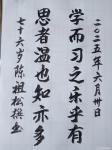 二〇二五年六月卅日
学而习之乐乎有
思者温也知亦多
七十六岁陈祖松撰并